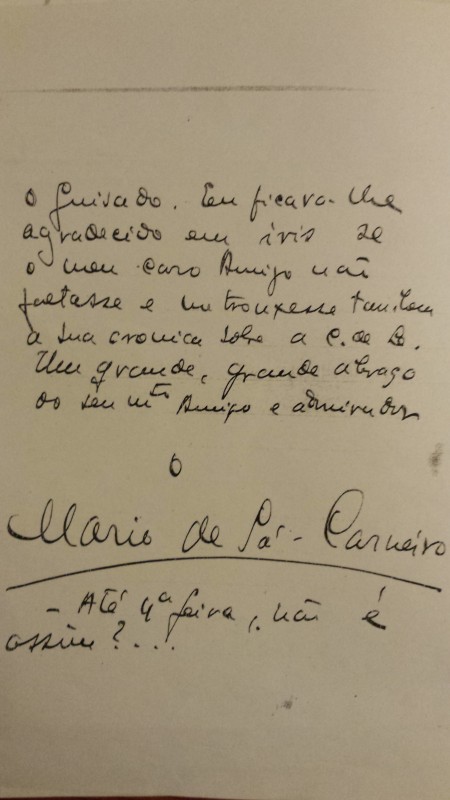 o Guisado. Eu ficava-lhe
agradecido em iris se
o meu caro Amigo não
faltasse e me trouxesse tambem
a sua cronica sobre a C. de L.
Um grande, grande abraço
do seu mto Amigo e admirador
o
Mario de Sá-Carneiro
- Até 4ª feira, não é
assim?...